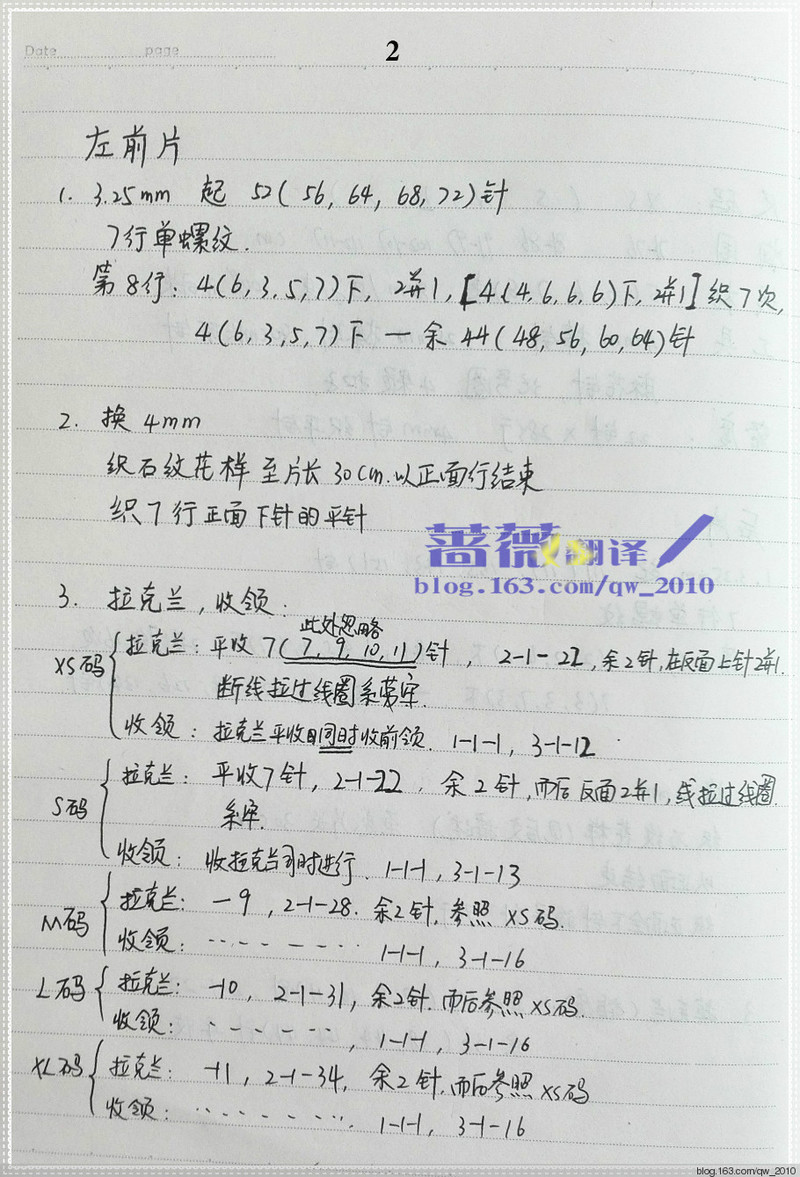 Date page
2
左前片
1. 3.25mm 起 52(56, 64, 68, 72)针
7行单螺纹.
第8行: 4(6, 3, 5, 7)下, 2并1, [4(4, 6, 6, 6)下, 2并1] 织7次,
4(6, 3, 5, 7)下 — 余44(48, 56, 60, 64)针
2. 换4mm
织石纹花样至片长30cm.以正面行结束
织7行正面下针的平针
蔷薇翻译
blog.163.com/qw_2010
3. 拉克兰, 收领:
此处忽略
XS码 拉克兰: 平收7(7, 9, 10, 11)针, 2-1-22, 余2针, 在反面上针2并1.
断线拉过线圈系牢.
收领: 拉克兰平收同时收前领. 1-1-1, 3-1-12
S码 拉克兰: 平收7针, 2-1-22, 余2针, 而后反面2并1, 线拉过线圈.
系牢.
收领: 收拉克兰同时进行. 1-1-1, 3-1-13
M码 拉克兰: -9, 2-1-28. 余2针. 参照XS码.
收领: ........ 1-1-1, 3-1-16
L码 拉克兰: -10, 2-1-31, 余2针. 而后参照XS码.
收领: ......, 1-1-1, 3-1-16
XL码 拉克兰: -11, 2-1-34, 余2针, 而后参照XS码
收领: ......... 1-1-1, 3-1-16
blog.163.com/qw_2010